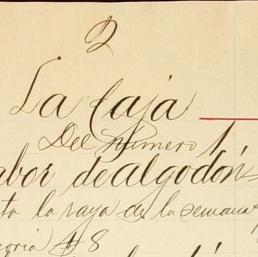 2
La Caja
Del Numero 1
abor de algodón
to la raya de la semana
oria # 8